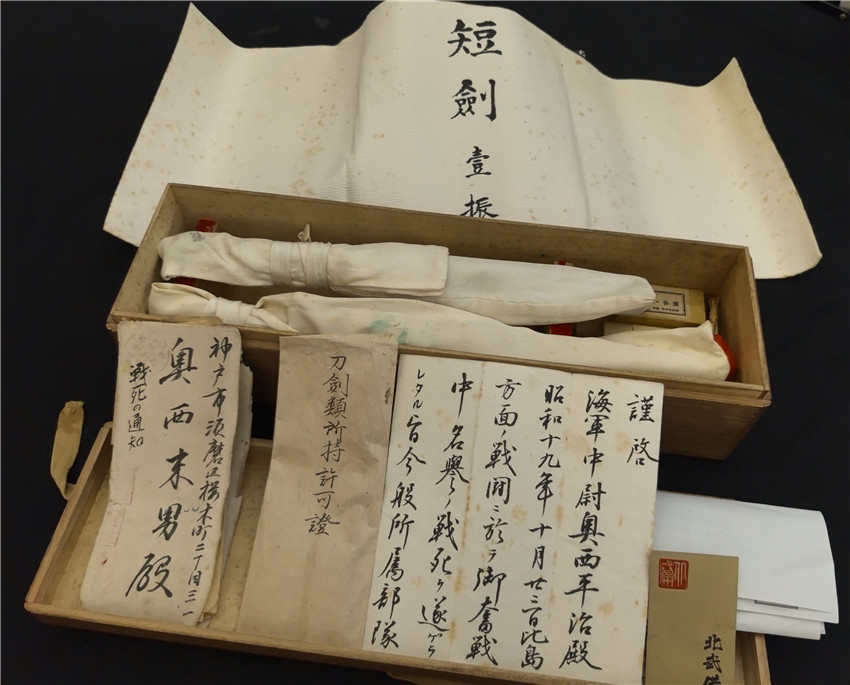 短劍壹振
神戸市須磨区桜木町二丁目三ノ一
奥西末男殿
戦死の通知
刀劍類所持許可證
謹啓
海軍中尉奥西平治殿
昭和十九年十月廿三日比島
方面ノ戦闘ニ於テ御奮戦
中名譽ノ戦死ヲ遂ゲラ
レタル旨今般所属部隊
北武